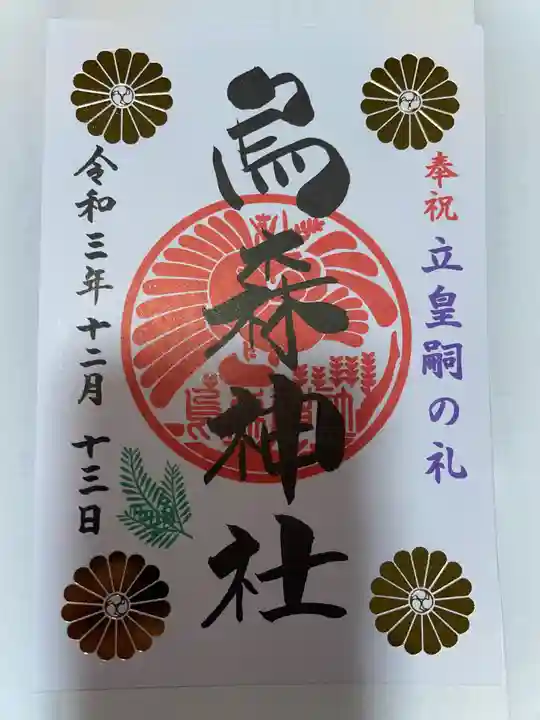 奉祝
立皇嗣の礼
烏森神社
令和三年十二月十三日